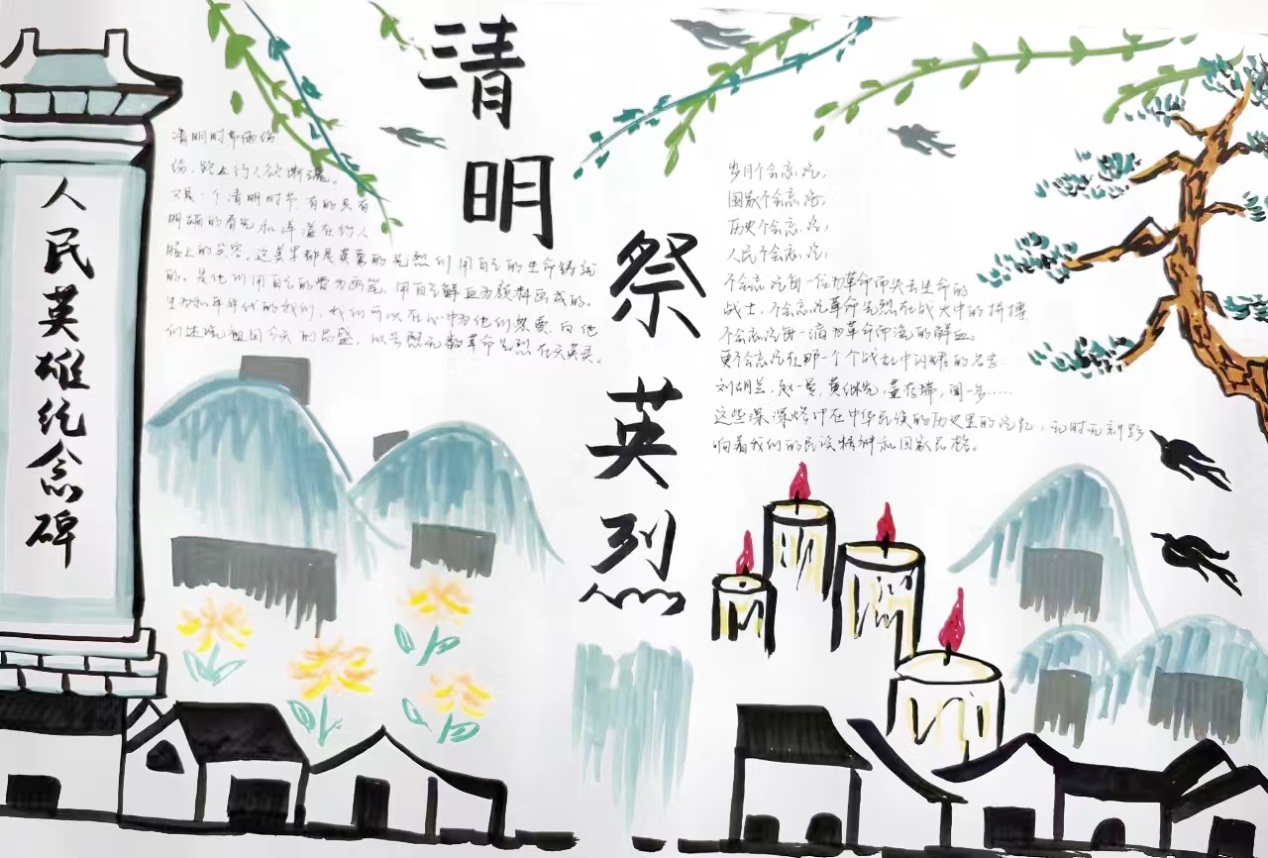 清明
祭英烈
人民英雄纪念碑
清明时节雨纷
纷，路上行人欲断魂。
又是一个清明时节，有的只有
明媚的春光和洋溢在行人
脸上的笑容，这美景都是英勇的先烈们用自己的生命铸就
的。是他们用自己的骨为画笔，用自己鲜血为颜料画成的。
生为和平年代的我们，我们可以在心中为他们祭奠，向他
们述说祖国今天的昌盛，以告慰无数革命先烈在天英灵。
岁月不会忘记，
国家不会忘记，
历史不会忘记，
人民不会忘记，
不会忘记每一位为革命而失去生命的
战士，不会忘记革命先烈在战火中的拼搏
不会忘记每一滴为革命而流的鲜血。
更不会忘记在那一个个战乱中闪耀的名字：
刘胡兰，赵一曼，黄继光，董存瑞，闻一多……
这些深深烙印在中华民族的历史里的记忆，无时无刻影
响着我们的民族精神和国家品格。